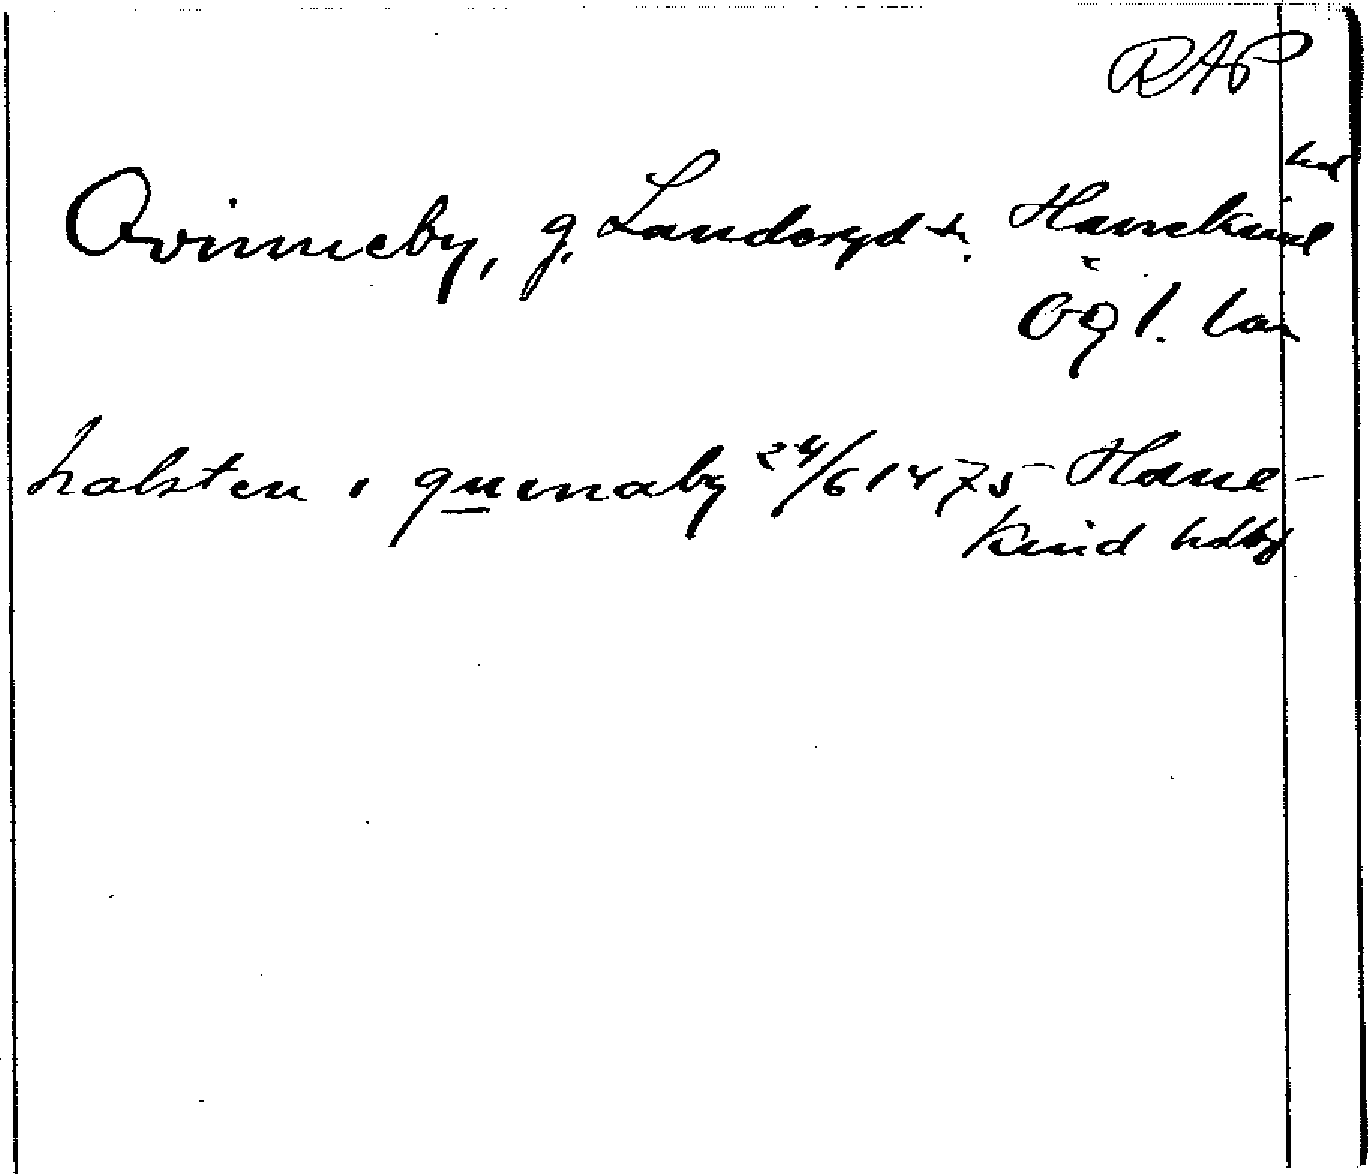 RAP
Qvinneby, g. Landeryd sn. Hanekind hd
Ögl. län
halsten i quinnaby 24/6 1475 Hane-
kind hdbr